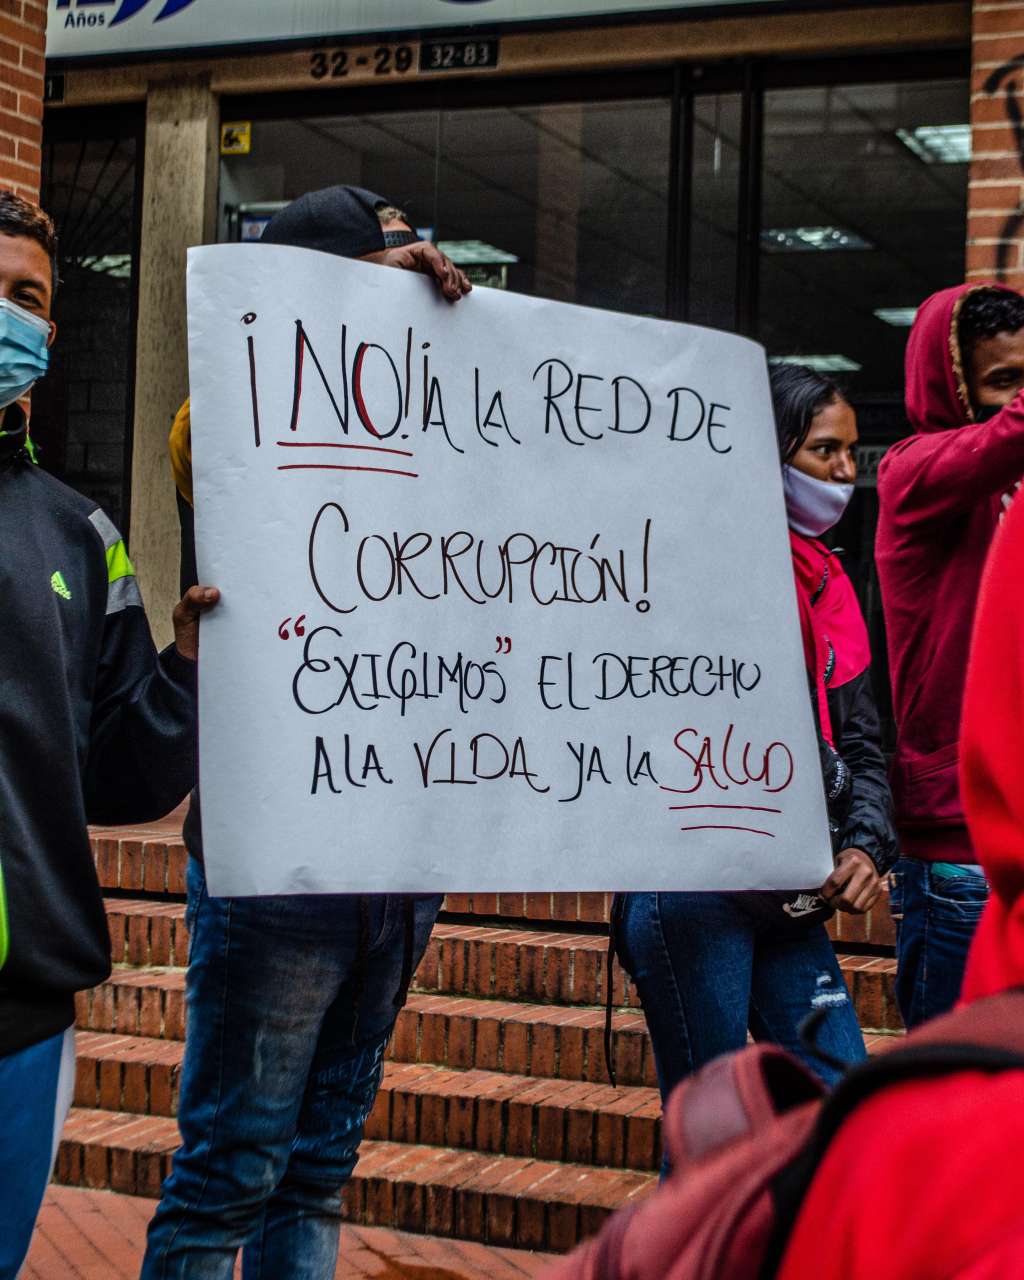 Años
32-29 32-83
¡NO! ¡A LA RED DE
CORRUPCIÓN!
“EXIGIMOS” EL DERECHO
A LA VIDA YA LA SALUD
CLASSIC
CLASSIC
NIKE